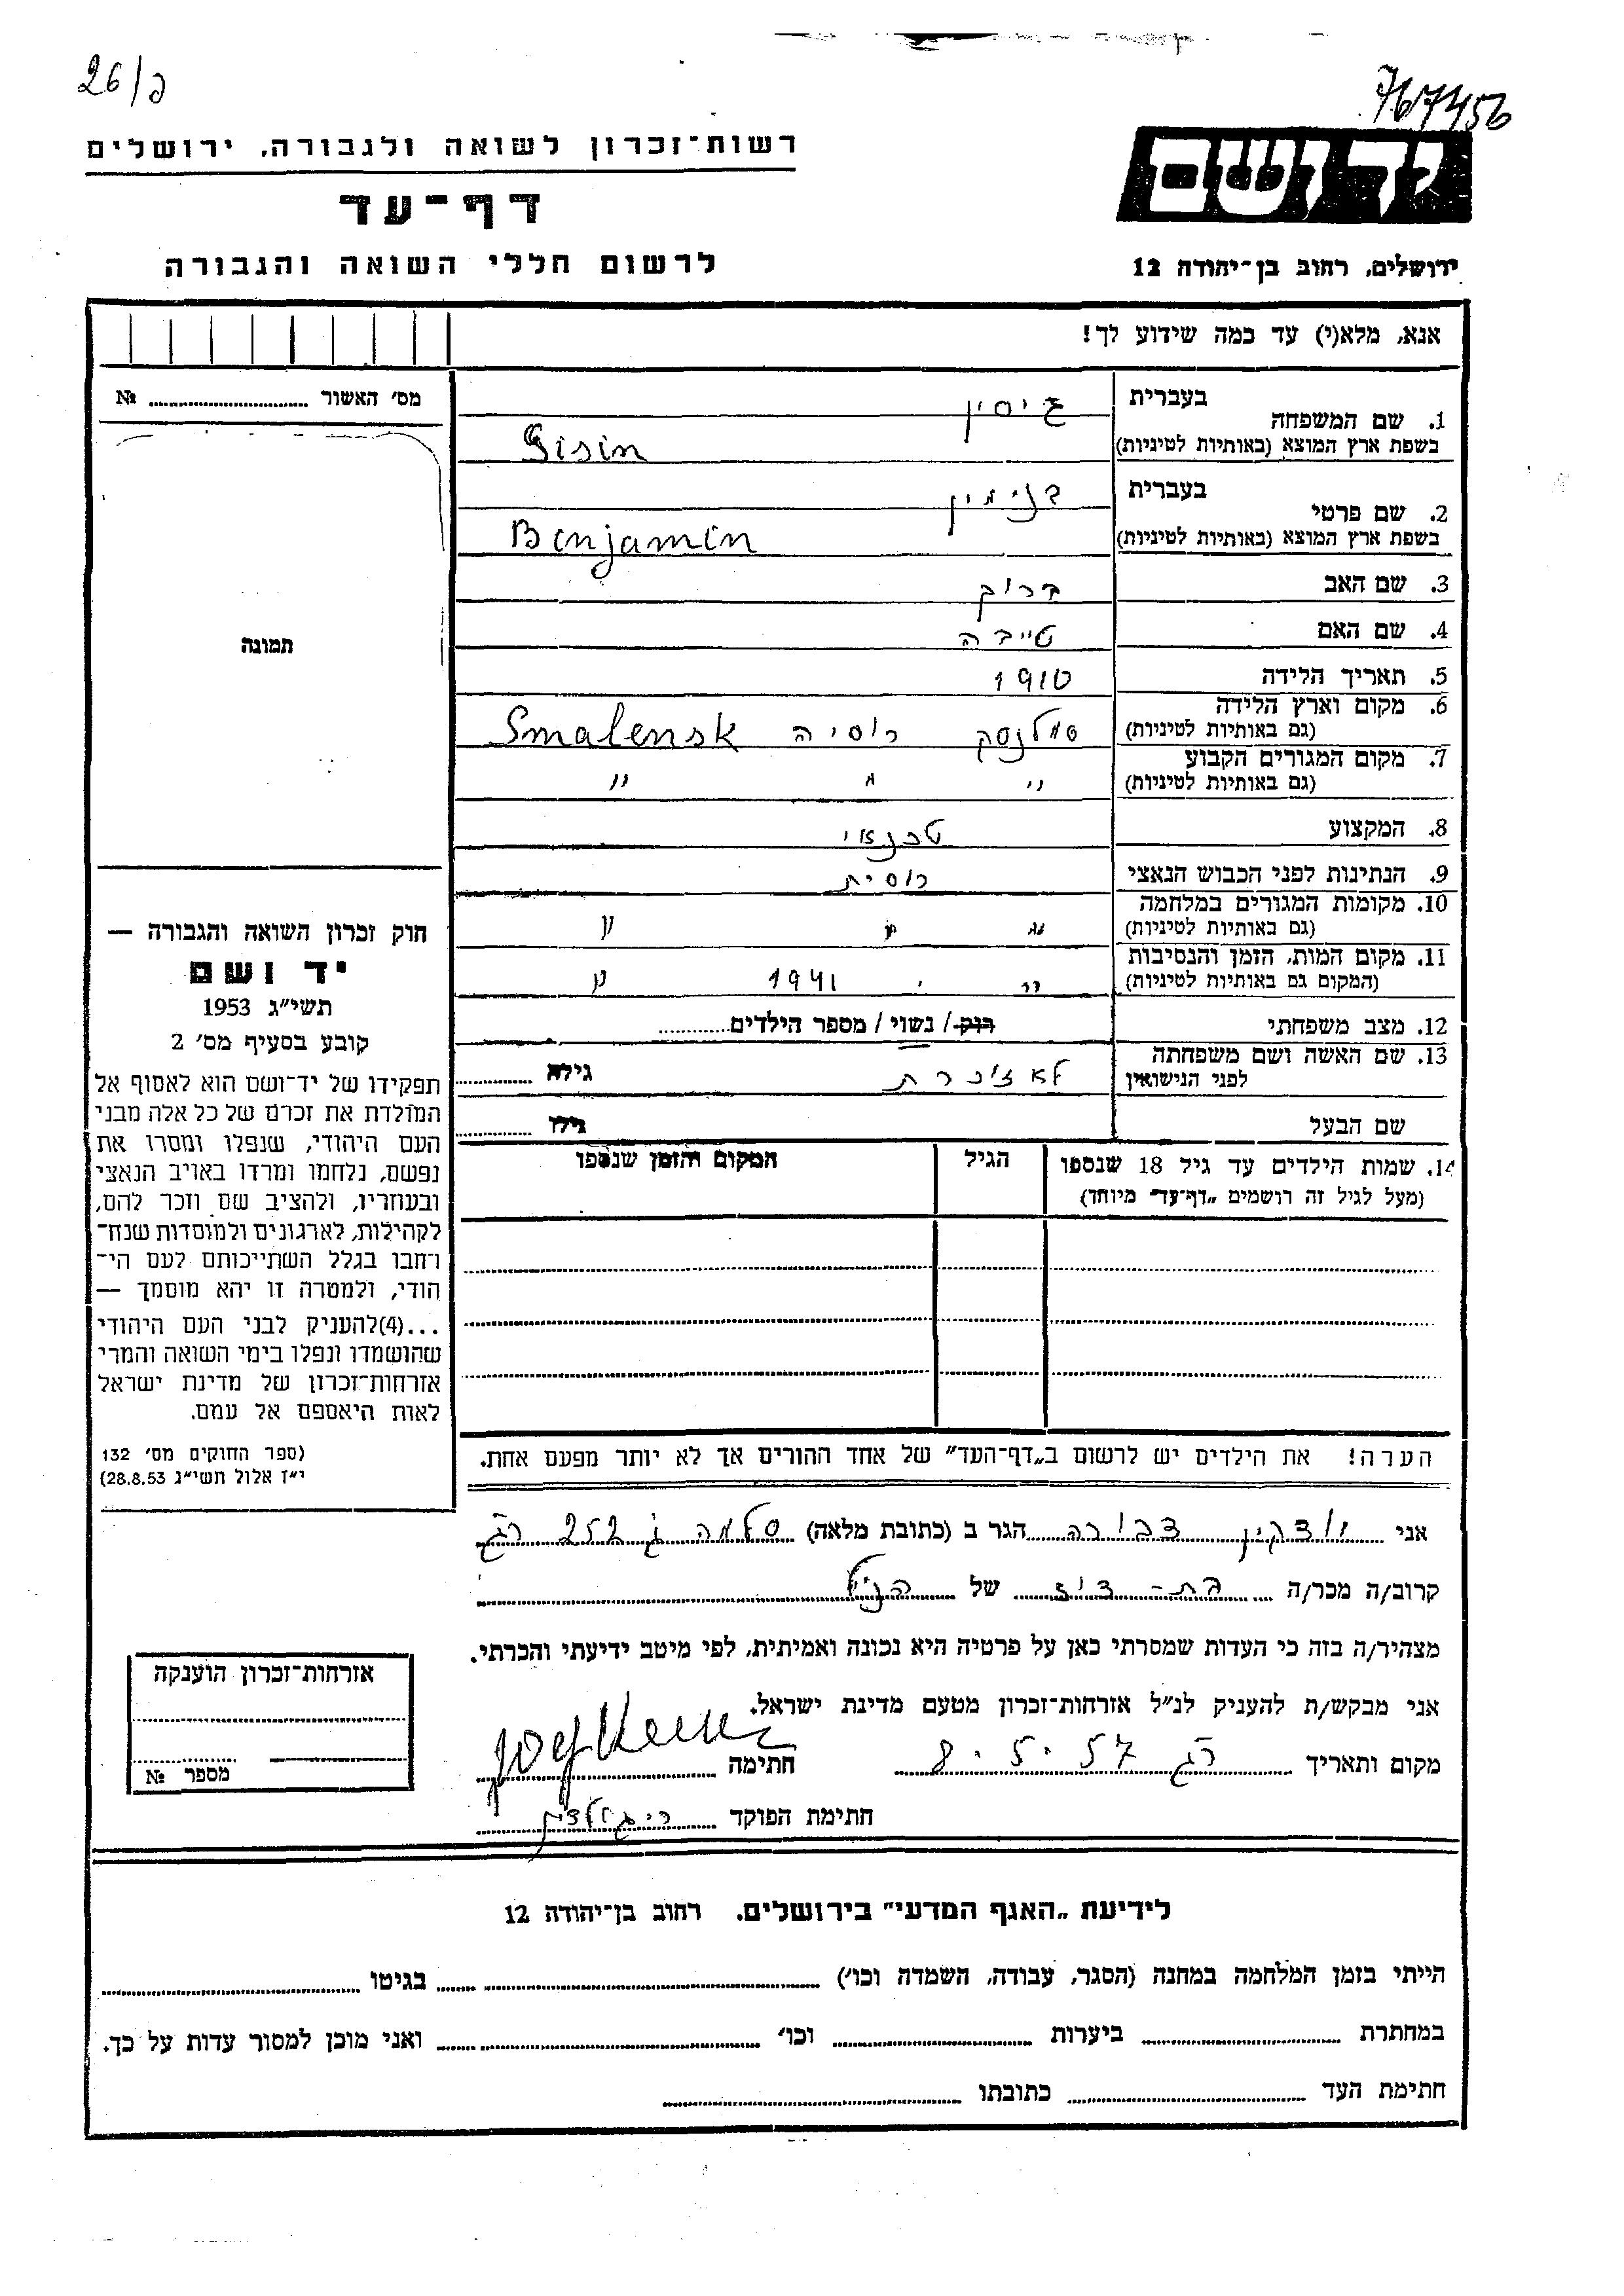 26/כ
767456
רשות־זכרון לשואה ולגבורה, ירושלים
דף־עד
לרשום חללי השואה והגבורה
יד ושם
ירושלים, רחוב בן־יהודה 12
אנא, מלא(י) עד כמה שידוע לך!
מס׳ האשור ........ №
תמונה
1. שם המשפחה בעברית גיסין
בשפת ארץ המוצא (באותיות לטיניות) Gisin
2. שם פרטי בעברית בנימין
בשפת ארץ המוצא (באותיות לטיניות) Binjamin
3. שם האב ברוך
4. שם האם טייבה
5. תאריך הלידה 1910
6. מקום וארץ הלידה (גם באותיות לטיניות) סמלנסק רוסיה Smalensk
7. מקום המגורים הקבוע (גם באותיות לטיניות) " " "
8. המקצוע טכנאי
9. הנתינות לפני הכבוש הנאצי רוסית
10. מקומות המגורים במלחמה (גם באותיות לטיניות) " " "
11. מקום המות, הזמן והנסיבות (המקום גם באותיות לטיניות) " " 1941 "
12. מצב משפחתי רוק / נשוי / מספר הילדים........
13. שם האשה ושם משפחתה לפני הנישואין לא זוכרת גילה ........
שם הבעל גילו ........
14. שמות הילדים עד גיל 18 שנספו הגיל המקום והזמן שנספו
(מעל לגיל זה רושמים „דף־עד״ מיוחד)
הערה! את הילדים יש לרשום ב„דף־העד״ של אחד ההורים אך לא יותר מפעם אחת.
חוק זכרון השואה והגבורה —
יד ושם
תשי״ג 1953
קובע בסעיף מס׳ 2
תפקידו של יד־ושם הוא לאסוף אל
המולדת את זכרם של כל אלה מבני
העם היהודי, שנפלו ומסרו את
נפשם, נלחמו ומרדו באויב הנאצי
ובעוזריו, ולהציב שם וזכר להם,
לקהילות, לארגונים ולמוסדות שנח־
רחבו בגלל השתייכותם לעם הי־
הודי, ולמטרה זו יהא מוסמך —
...(4)להעניק לבני העם היהודי
שהושמדו ונפלו בימי השואה והמרי
אזרחות־זכרון של מדינת ישראל
לאות היאספם אל עמם.
(ספר החוקים מס׳ 132
י״ז אלול תשי״ג 28.8.53)
אני יודקין דבורה הגר ב (כתובת מלאה) סלמה ג 252 רג
קרוב/ה מכר/ה בת-דוד של הנ״ל
מצהיר/ה בזה כי העדות שמסרתי כאן על פרטיה היא נכונה ואמיתית, לפי מיטב ידיעתי והכרתי.
אני מבקש/ת להעניק לנ״ל אזרחות־זכרון מטעם מדינת ישראל.
מקום ותאריך רג 8.5.57 חתימה
חתימת הפוקד
אזרחות־זכרון הוענקה
מספר №
לידיעת „האגף המדעי״ בירושלים, רחוב בן־יהודה 12
הייתי בזמן המלחמה במחנה (הסגר, עבודה, השמדה וכו׳) ........ בגיטו ........
במחתרת ........ ביערות ........ וכו׳ ........ ואני מוכן למסור עדות על כך.
חתימת העד ........ כתובתו ........